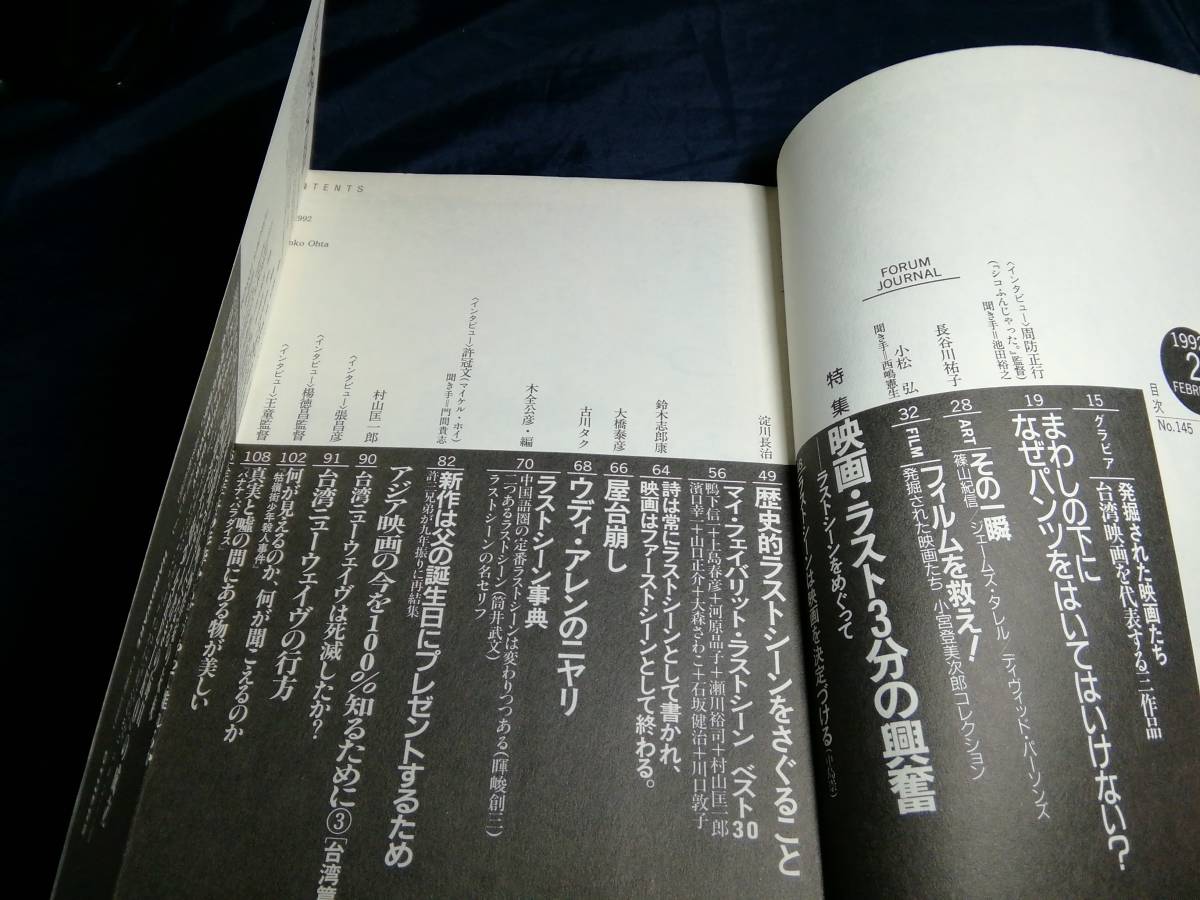 1992
2
FEBR
目次
No.145
15
グラビア
発掘された映画たち
台湾映画を代表する二作品
〈インタビュー〉周防正行
(『シコふんじゃった。』監督)
聞き手＝池田裕之
19
まわしの下に
なぜパンツをはいてはいけない?
FORUM
JOURNAL
長谷川祐子
28
ART
その一瞬
篠山紀信 ジェームズ・タレル/デイヴィッド・パーソンズ
小松 弘
聞き手＝西嶋憲生
32
FILM
フィルムを救え!
発掘された映画たち 小宮登美次郎コレクション
特集
映画・ラスト3分の興奮
──ラストシーンをめぐって
ラストシーンは映画を決定づける
NTENTS
1992
ko Ohta
淀川長治
49
歴史的ラストシーンをさぐること
56
マイ・フェイバリット・ラストシーン ベスト30
鴨下信一+上島春彦+河原晶子+瀬川裕司+村山匡一郎
濱口幸一+山口正介+大森さわこ+石坂健治+川口敦子
鈴木志郎康
64
詩は常にラストシーンとして書かれ、
映画はファーストシーンとして終わる。
大橋泰彦
66
屋台崩し
古川タク
68
ウディ・アレンのニヤリ
木全公彦・編
70
ラストシーン事典
中国語圏の定番ラストシーンは変わりつつある(暉峻創三)
二つあるラストシーン(筒井武文)
ラストシーンの名セリフ
〈インタビュー〉許冠文(マイケル・ホイ)
聞き手＝門間貴志
82
新作は父の誕生日にプレゼントするため
許三兄弟が九年振りに再結集
アジア映画の今を100%知るために③[台湾篇
村山匡一郎
90
台湾ニューウェイヴは死滅したか?
〈インタビュー〉張昌彦
91
台湾ニューウェイヴの行方
〈インタビュー〉楊徳昌監督
102
何が見えるのか、何が聞こえるのか
『牯嶺街少年殺人事件』
〈インタビュー〉王童監督
108
真実と嘘の間にある物が美しい
『バナナ・パラダイス』